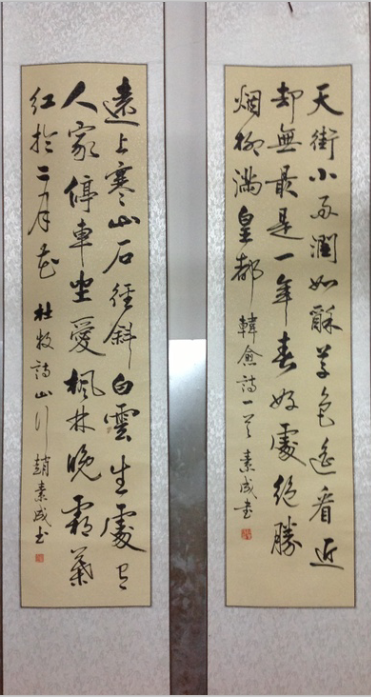 天街小雨潤如酥草色遙看近
却無最是一年春好處絕勝
烟柳滿皇都 韓愈詩一首 素成書
遠上寒山石徑斜白雲生處有
人家停車坐愛楓林晚霜葉
紅於二月花 杜牧詩山行 趙素成書